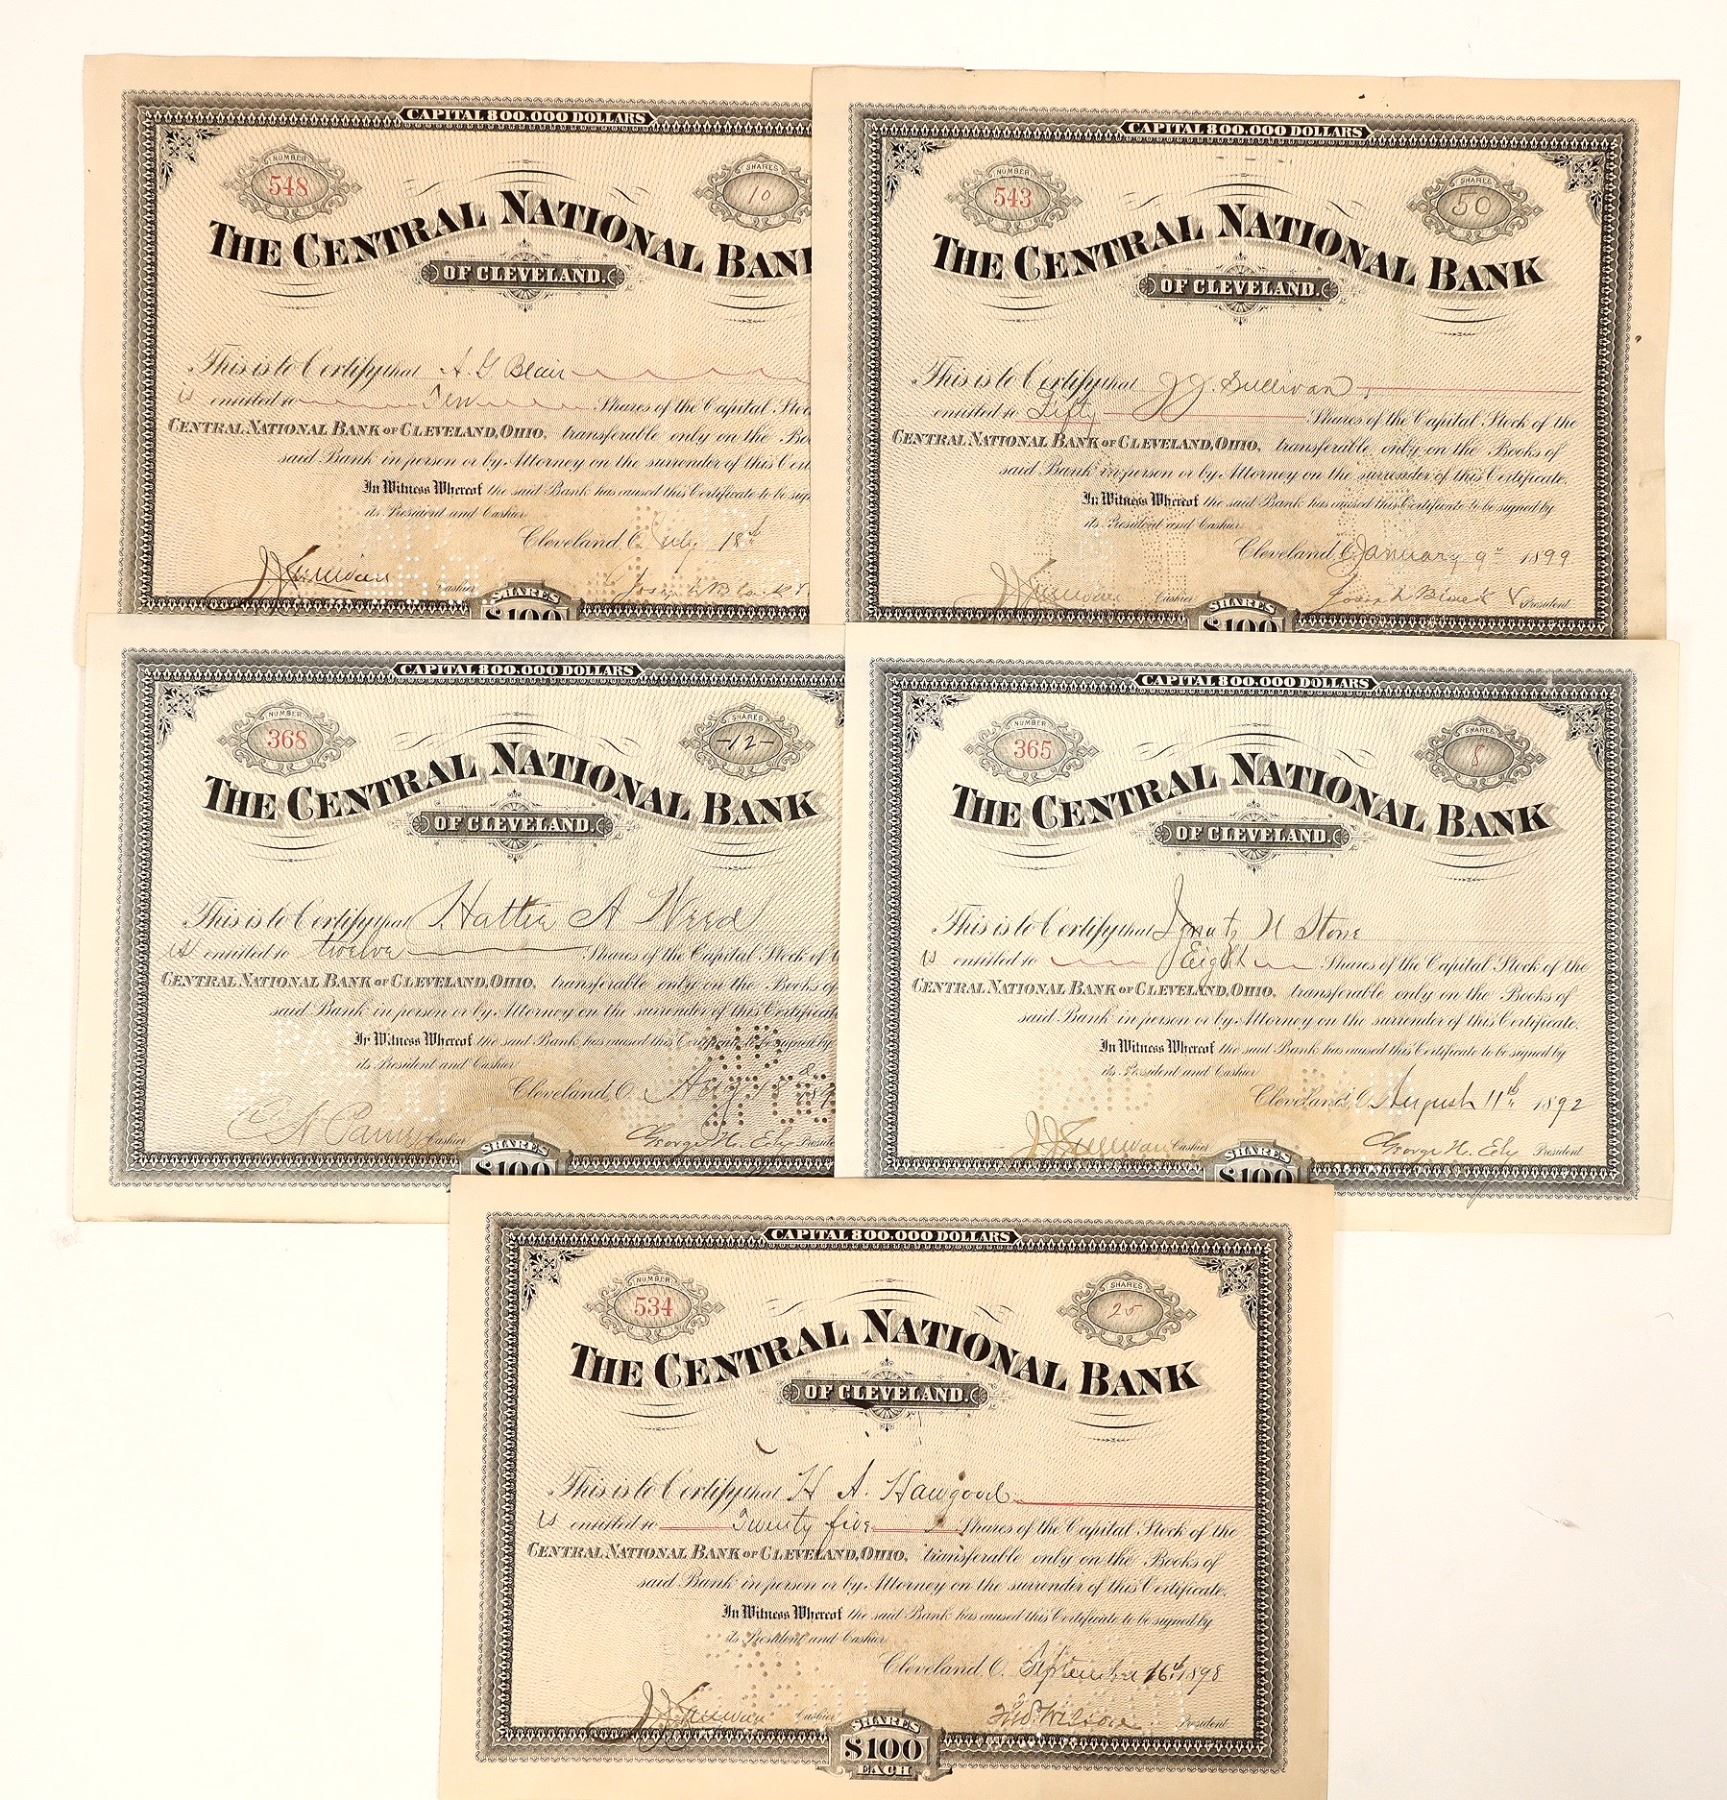 CAPITAL 800.000 DOLLARS
NUMBER
548
SHARES
10
THE CENTRAL NATIONAL BAN
OF CLEVELAND.
This is to Certify that A G Blair
is entitled to Ten Shares of the Capital Stoc
CENTRAL NATIONAL BANK OF CLEVELAND, OHIO, transferable only on the Bo
said Bank in person or by Attorney on the surrender of this Cert
In Witness Whereof the said Bank has caused this Certificate to be sig
its President and Cashier
Cleveland, O. July 18th
J J Sullivan Cashier
SHARES
$100
CAPITAL 800.000 DOLLARS
NUMBER
543
SHARES
50
THE CENTRAL NATIONAL BANK
OF CLEVELAND.
This is to Certify that J J. Sullivan
entitled to Fifty Shares of the Capital Stock of the
CENTRAL NATIONAL BANK OF CLEVELAND, OHIO, transferable only on the Books of
said Bank in person or by Attorney on the surrender of this Certificate.
In Witness Whereof the said Bank has caused this Certificate to be signed by
its President and Cashier
Cleveland, O. January 9th 1899
J J Sullivan Cashier President
SHARES
$100
CAPITAL 800.000 DOLLARS
NUMBER
368
SHARES
-12-
THE CENTRAL NATIONAL BANK
OF CLEVELAND.
This is to Certify that Hattie A Weed
is entitled to twelve Shares of the Capital Stock of
CENTRAL NATIONAL BANK OF CLEVELAND, OHIO, transferable only on the Books of
said Bank in person or by Attorney on the surrender of this Certificate
In Witness Whereof the said Bank has caused this Certificate to be signed by
its President and Cashier
PAID
Cleveland, O.
Cashier George H. Ely Preside
SHARES
$100
CAPITAL 800.000 DOLLARS
NUMBER
365
SHARES
8
THE CENTRAL NATIONAL BANK
OF CLEVELAND.
This is to Certify that Ignatz N Stone
is entitled to Eight Shares of the Capital Stock of the
CENTRAL NATIONAL BANK OF CLEVELAND, OHIO, transferable only on the Books of
said Bank in person or by Attorney on the surrender of this Certificate.
In Witness Whereof the said Bank has caused this Certificate to be signed by
its President and Cashier
PAID
Cleveland, O. August 11th 1892
J J Sullivan Cashier George H. Ely President
SHARES
$100
CAPITAL 800.000 DOLLARS
NUMBER
534
SHARES
25
THE CENTRAL NATIONAL BANK
OF CLEVELAND.
This is to Certify that H A. Hawgood
is entitled to Twenty five Shares of the Capital Stock of the
CENTRAL NATIONAL BANK OF CLEVELAND, OHIO, transferable only on the Books of
said Bank in person or by Attorney on the surrender of this Certificate.
In Witness Whereof the said Bank has caused this Certificate to be signed by
its President and Cashier
Cleveland, O. September 16th 1898
J J Sullivan Cashier Wilson President
SHARES
$100
EACH